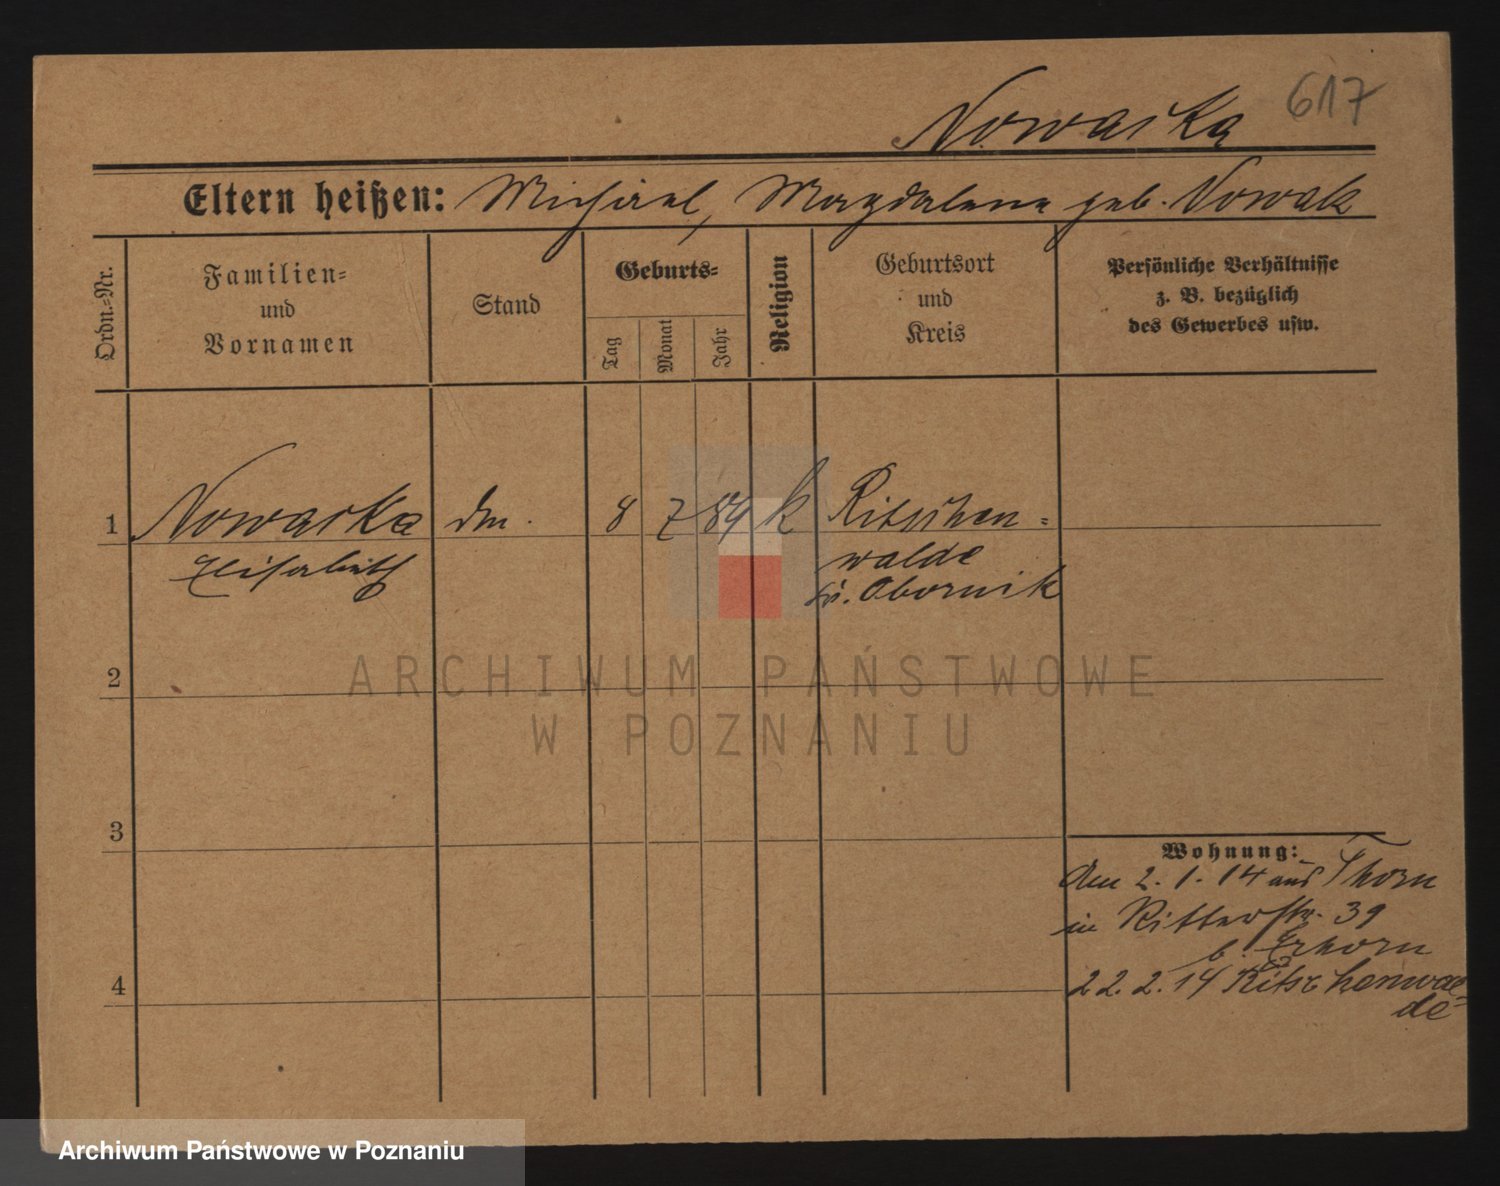 617
Nowacka
Eltern heißen: Michael, Magdalena geb. Nowak
Ordn.-Nr.
Familien-
und
Vornamen
Stand
Geburts-
Tag
Monat
Jahr
Religion
Geburtsort
und
Kreis
Persönliche Verhältnisse
z. B. bezüglich
des Gewerbes usw.
1 Nowacka 8 7 89 k Ritschen-
Elisabeth walde
Kr. Obornik
2
ARCHIWUM PAŃSTWOWE
W POZNANIU
3
Wohnung:
Am 2.1.14 aus Thorn
in Ritterstr. 39
b.
4
22.2.14 Ritschenwal-
de
Archiwum Państwowe w Poznaniu